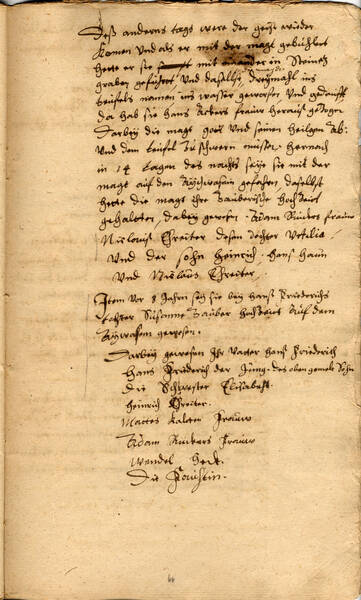 Deß anderns tags were der geist wieder
komen und als er mit der magt gebuhlet
hette er sie mit einander in Steinetz
graben gefühert und daselbst dreymahl ins
teufels namen ins wasser geworfen und gedaufft
da hab sie hans Ackers frauw heraus gezogen.
Darbey die magt gott und seinen heiligen ab:
und dem teufel zu schwern müssen. hernach
in 14 tagen des nachts seye sie mit der
magt auf den gefahren, daselbst
hette die magt ihre Zauberische hochzeit
gehalten, dabey gewesen. Adam frauw
Greiter dessen dochter Ottilia
Und der sohn Heinrich. Hans Haun
Und Niclaus Greiter.
Item vor 8 Jahren sey sie bey Hanß Friederichs
dochter Susanna Zauber hochzeit auf dem
gewesen.
Darbey gewesen Ihr Vatter Hanß Friderich
Hans Friderich der Jung. des oben gemelt Sohn
Die Schwester Elisabeth.
Heinrich Greiter.
Mattes Kalten Frauw
Adam Frauw
Wendel
Die